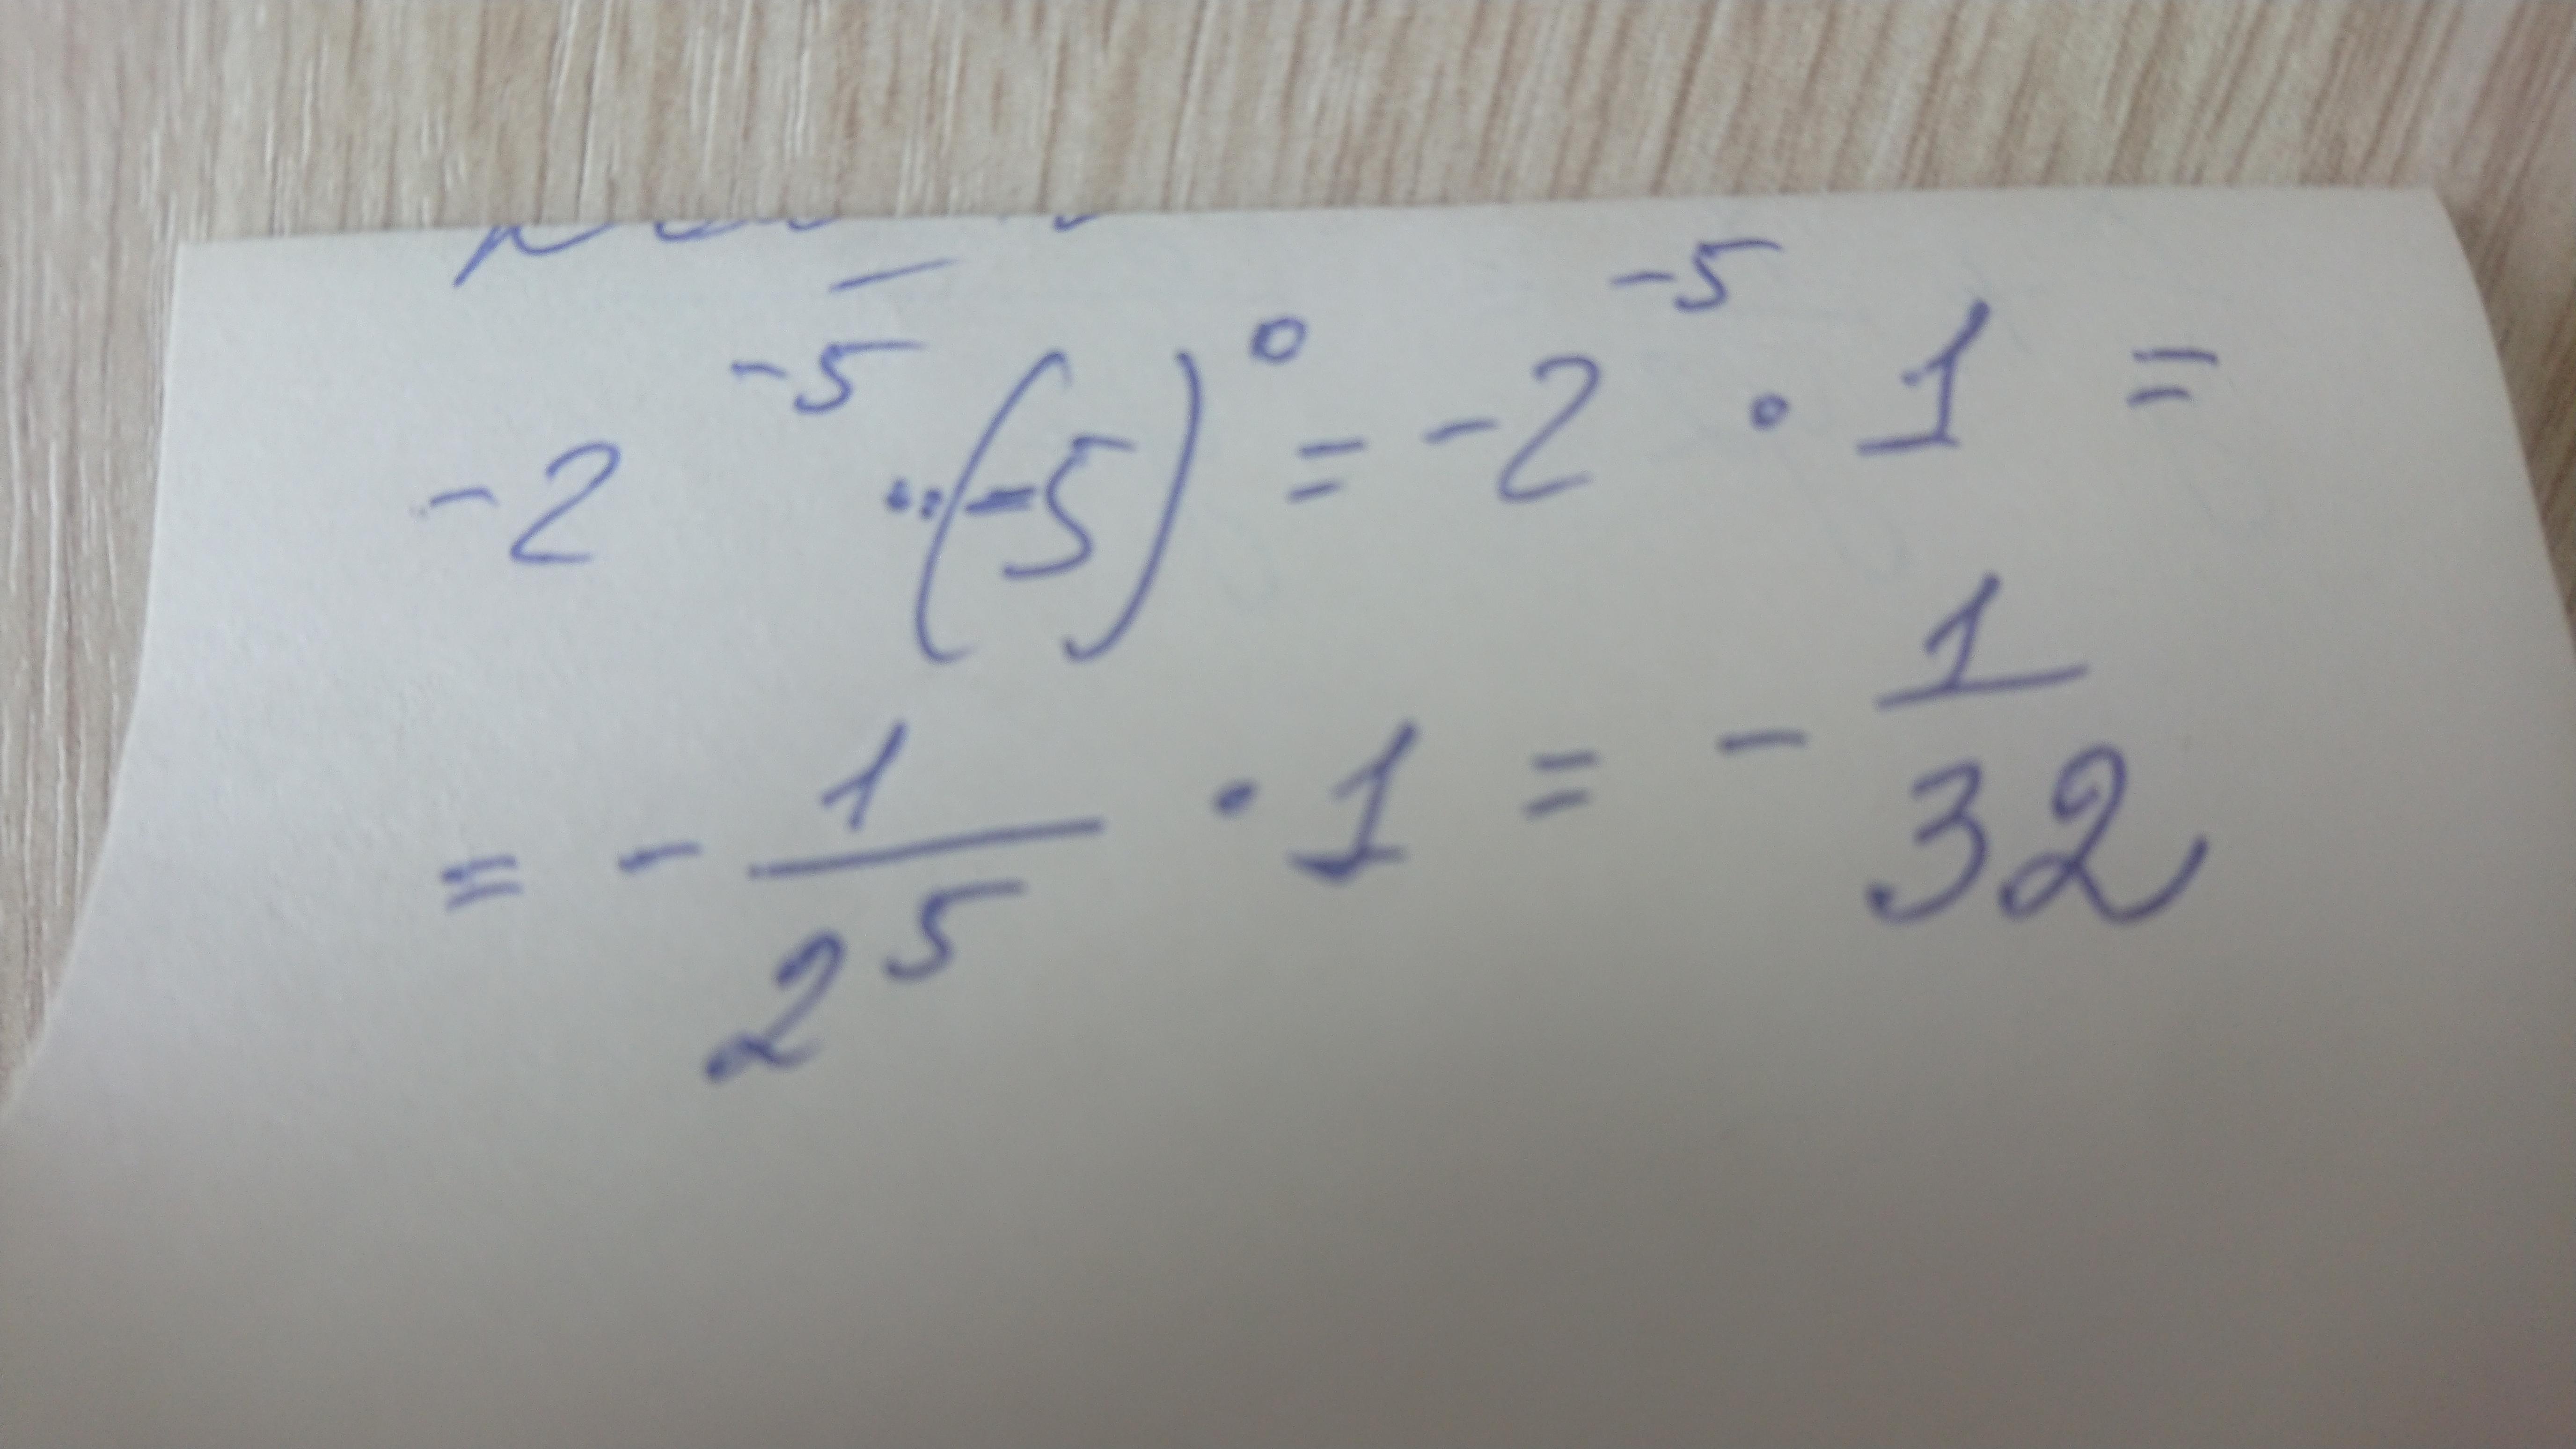 -2⁻⁵ · (-5)⁰ = -2⁻⁵ · 1 =
= - 1/2⁵ · 1 = - 1/32